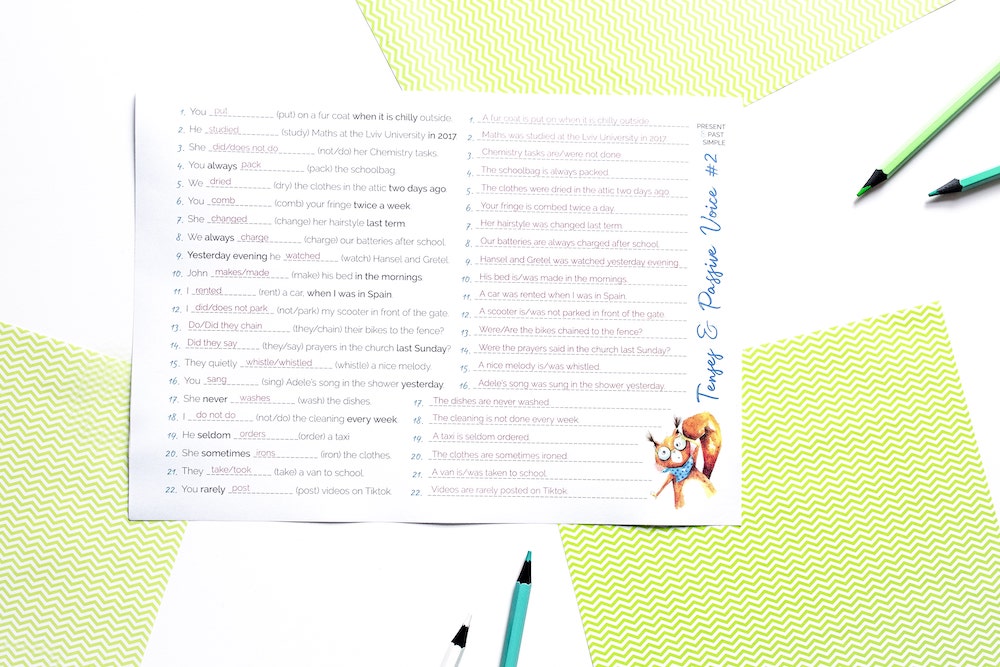 1. You put (put) on a fur coat when it is chilly outside.
2. He studied (study) Maths at the Lviv University in 2017.
3. She did/does not do (not/do) her Chemistry tasks.
4. You always pack (pack) the schoolbag.
5. We dried (dry) the clothes in the attic two days ago.
6. You comb (comb) your fringe twice a week.
7. She changed (change) her hairstyle last term.
8. We always charge (charge) our batteries after school.
9. Yesterday evening he watched (watch) Hansel and Gretel.
10. John makes/made (make) his bed in the mornings.
11. I rented (rent) a car, when I was in Spain.
12. I did/does not park (not/park) my scooter in front of the gate.
13. Do/Did they chain (they/chain) their bikes to the fence?
14. Did they say (they/say) prayers in the church last Sunday?
15. They quietly whistle/whistled (whistle) a nice melody.
16. You sang (sing) Adele's song in the shower yesterday.
17. She never washes (wash) the dishes.
18. I do not do (not/do) the cleaning every week.
19. He seldom orders (order) a taxi.
20. She sometimes irons (iron) the clothes.
21. They take/took (take) a van to school.
22. You rarely post (post) videos on Tiktok.
1. A fur coat is put on when it is chilly outside.
2. Maths was studied at the Lviv University in 2017.
3. Chemistry tasks are/were not done.
4. The schoolbag is always packed.
5. The clothes were dried in the attic two days ago.
6. Your fringe is combed twice a day.
7. Her hairstyle was changed last term.
8. Our batteries are always charged after school.
9. Hansel and Gretel was watched yesterday evening.
10. His bed is/was made in the mornings.
11. A car was rented when I was in Spain.
12. A scooter is/was not parked in front of the gate.
13. Were/Are the bikes chained to the fence?
14. Were the prayers said in the church last Sunday?
15. A nice melody is/was whistled.
16. Adele's song was sung in the shower yesterday.
17. The dishes are never washed.
18. The cleaning is not done every week.
19. A taxi is seldom ordered.
20. The clothes are sometimes ironed.
21. A van is/was taken to school.
22. Videos are rarely posted on Tiktok.
PRESENT
& PAST
SIMPLE
Tenses & Passive Voice #2